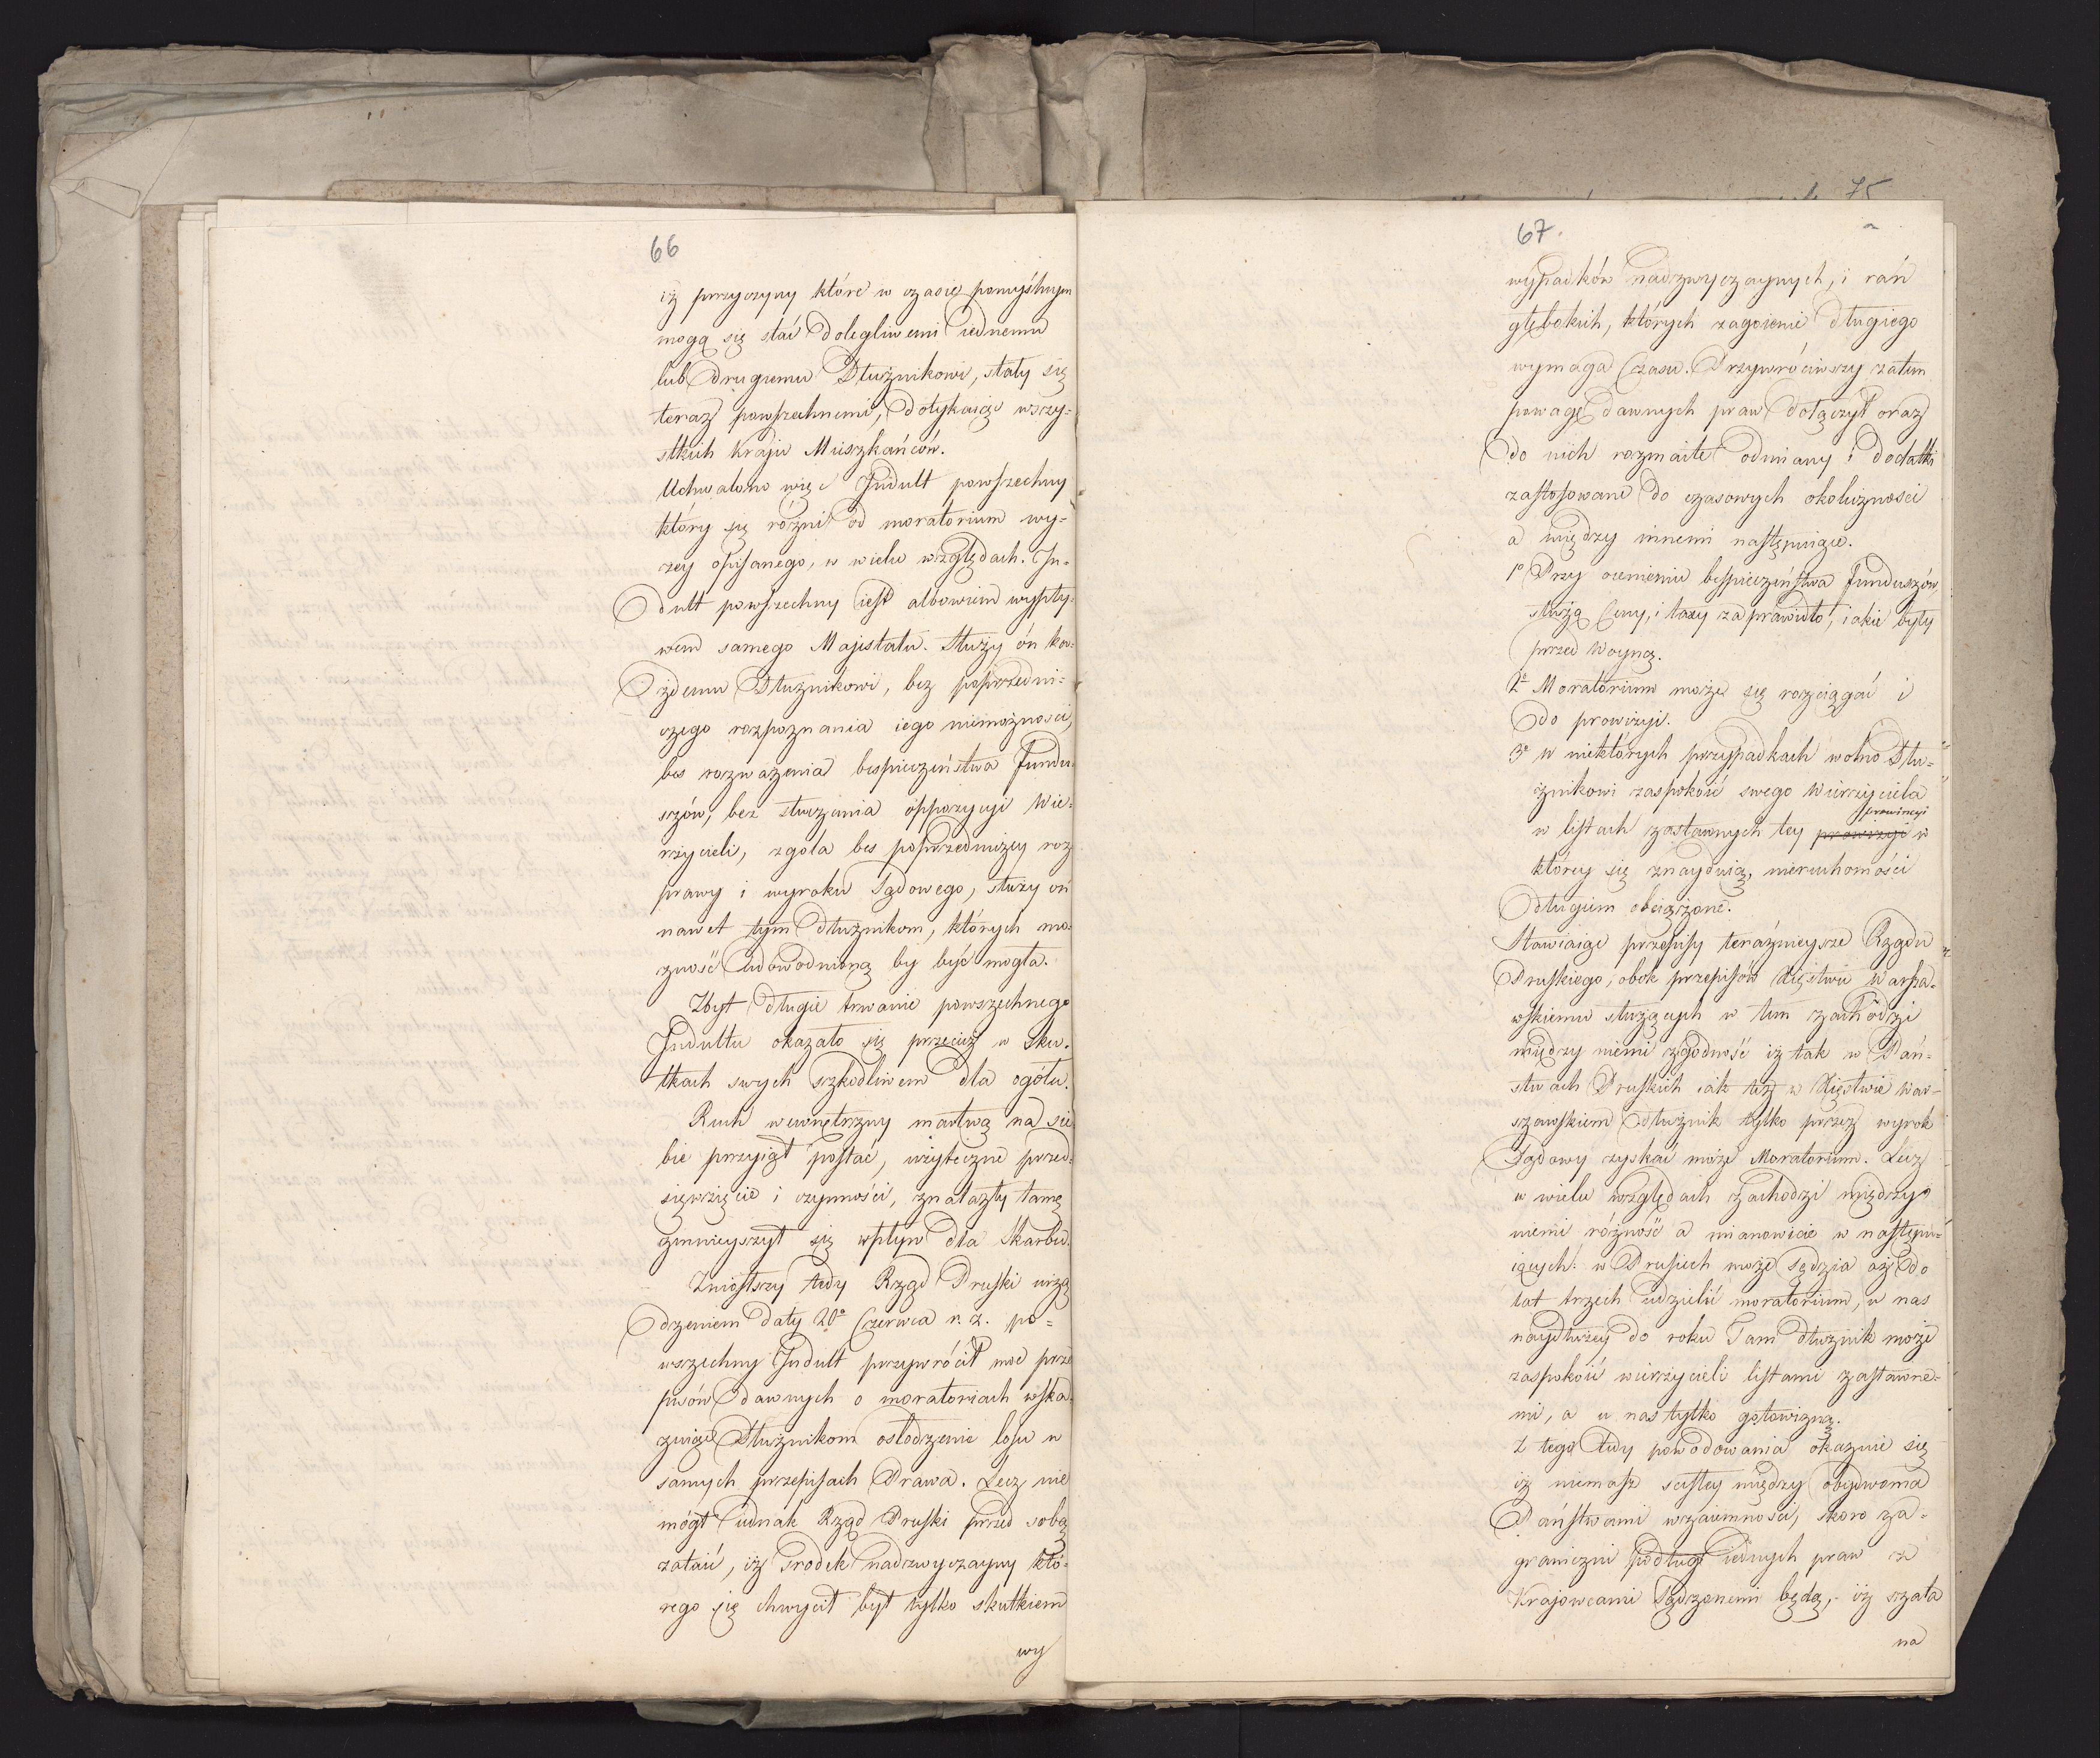 66
iż przyczyny które w czasie pomyślnym
mogą się stać dolegliwemi iednemu
lub drugiemu Dłużnikowi, stały się
teraz powszechnemi, dotykaiąc wszy-
stkich Kraju Mieszkańców.
Uchwalono więc Indult powszechny
który się różni od moratorium wy-
żey opisanego, w wielu względach. In-
dult powszechny iest albowiem wypły-
wem samego Majestatu. Służy ón ka-
żdemu Dłużnikowi, bez poprzedni-
czego rozpoznania iego niemożności,
bes rozważenia bespieczeństwa Fundu-
szów, bez słuszenia oppozycyi Wie-
rzycieli, zgoła bes poprzedniczey roz
prawy i wyroku Sądowego, służy on
nawet tym dłużnikom, których mo-
żność udowodnioną by być mogła.
Zbyt długie trwanie powszechnego
Indultu okazało się przecież w sku-
tkach swych szkodliwem dla ogółu.
Ruch wewnętrzny martwą na sie
bie przyiął postać, użyteczne przed-
sięwzięcie i czynności, znalazły tamę
zmnieyszył się wpływ dla Skarbu.
Zniosłszy tedy Rząd Pruski urzą
dzeniem daty 20º Czerwca r. z. po-
wszechny Indult przywrócił moc prze
pisów dawnych o moratoriach wska-
zuiąc Dłużnikom osłodzenie losu w
samych przepisach Prawa. Lecz nie
mógł iednak Rząd Pruski przed sobą
zataić, iż Srodek nadzwyczayny któ-
rego się chwycił był tylko skutkiem
wy
75
67.
wypadków nadzwyczaynych, i rań
głębokich, których zagoienie długiego
wymaga Czasu. Przywróciwszy zatem
powagę dawnych praw dołączył oraz
do nich rozmaite odmiany i dodatki
zastosowane do czasowych okoliczności
a między innemi następuiące.
1º Przy ocenieniu bespieczeństwa funduszów,
służą Ceny, i taxy za prawidło, iakie były
przed Woyną.
2º Moratorium może się rozciągać i
do prowizyi.
3º w niektórych przypadkach wolno Dłu-
żnikowi zaspokoić swego Wierzyciela
prowincyi
w listach zastawnych tey prowizyi w
którey się znayduią, nieruchomości
długiem obciążone.
Stawiaiąc przepisy teraźnieysze Rządu
Pruskiego, obok przepisów Xięstwu Warsza-
wskiemu służących w tem zachodzi
między niemi zgodność iż tak w Pań-
stwach Pruskich iak też w Xięstwie War-
szawskiem dłużnik tylko przez wyrok
Sądowy zyskać może Moratorium. Lecz
w wielu względach zachodzi między
niemi różność a mianowicie w następu-
iących: w Prusiech może Sędzia aż do
lat trzech udzielić moratorium, u nas
naydłużey do roku Tam dłużnik może
zaspokoić wierzycieli listami zastawne-
mi, a u nas tylko gotowizną.
Z tego tedy powodowania okazuie się
iż niemasz scisłey między obydwoma
Państwami wzaiemności, skoro za-
graniczni podług iednych praw z
Krajowcami Sądzonemi będą, iż szala
na